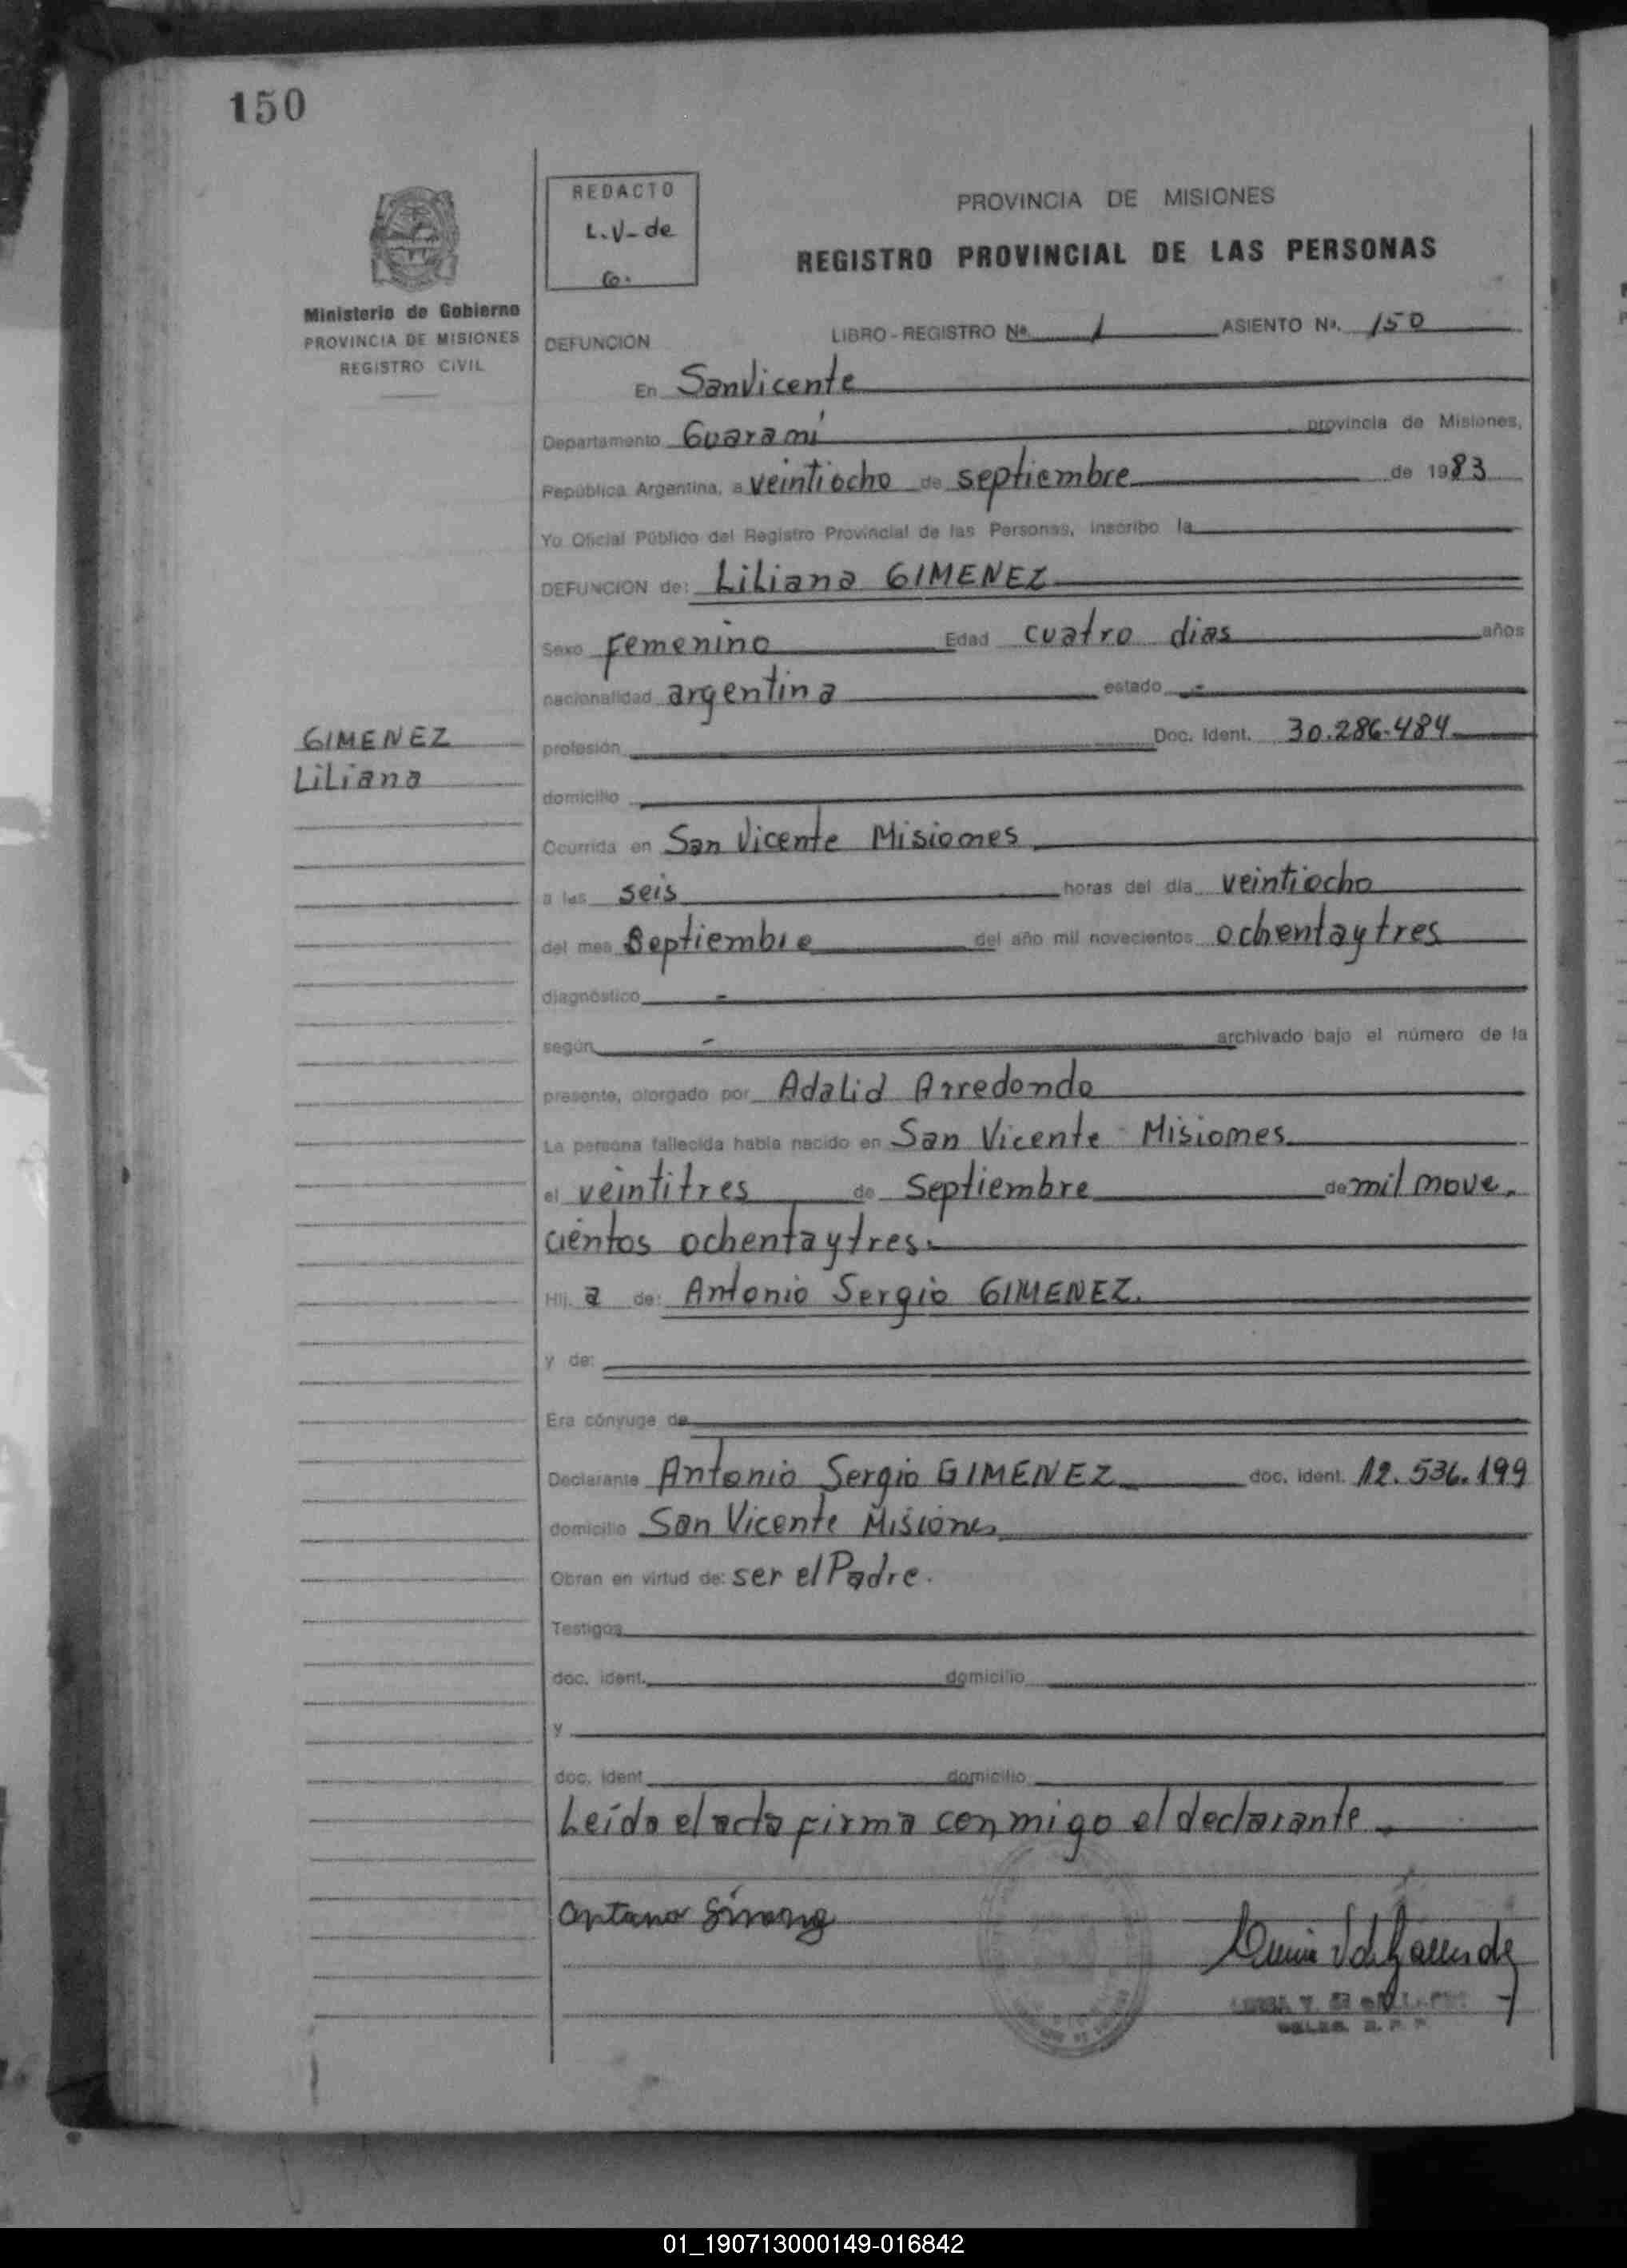 150
REDACTO
L.V-de
G.
PROVINCIA DE MISIONES
REGISTRO PROVINCIAL DE LAS PERSONAS
Ministerio de Gobierno
PROVINCIA DE MISIONES
REGISTRO CIVIL
DEFUNCION LIBRO-REGISTRO Nº. 1 ASIENTO Nº. 150
En San Vicente
Departamento Guaraní provincia de Misiones,
República Argentina, a veintiocho de septiembre de 1983
Yo Oficial Público del Registro Provincial de las Personas, inscribo la
DEFUNCION de: Liliana GIMENEZ
Sexo Femenino Edad cuatro dias años
nacionalidad argentina estado -
GIMENEZ
Liliana
profesión Doc. Ident. 30.286.484
domicilio
Ocurrida en San Vicente Misiones
a las seis horas del día veintiocho
del mes Septiembre del año mil novecientos ochentaytres
diagnóstico -
según - archivado bajo el número de la
presente, otorgado por Adalid Arredondo
La persona fallecida había nacido en San Vicente Misiones
el veintitres de Septiembre de mil nove.
cientos ochentaytres.
Hij a de: Antonio Sergio GIMENEZ.
y de:
Era cónyuge de
Declarante Antonio Sergio GIMENEZ doc. ident. 12.536.199
domicilio San Vicente Misiones
Obran en virtud de: ser el Padre.
Testigos
doc. ident. domicilio
y
doc. ident domicilio
Leída el acta firma conmigo el declarante
01_190713000149-016842